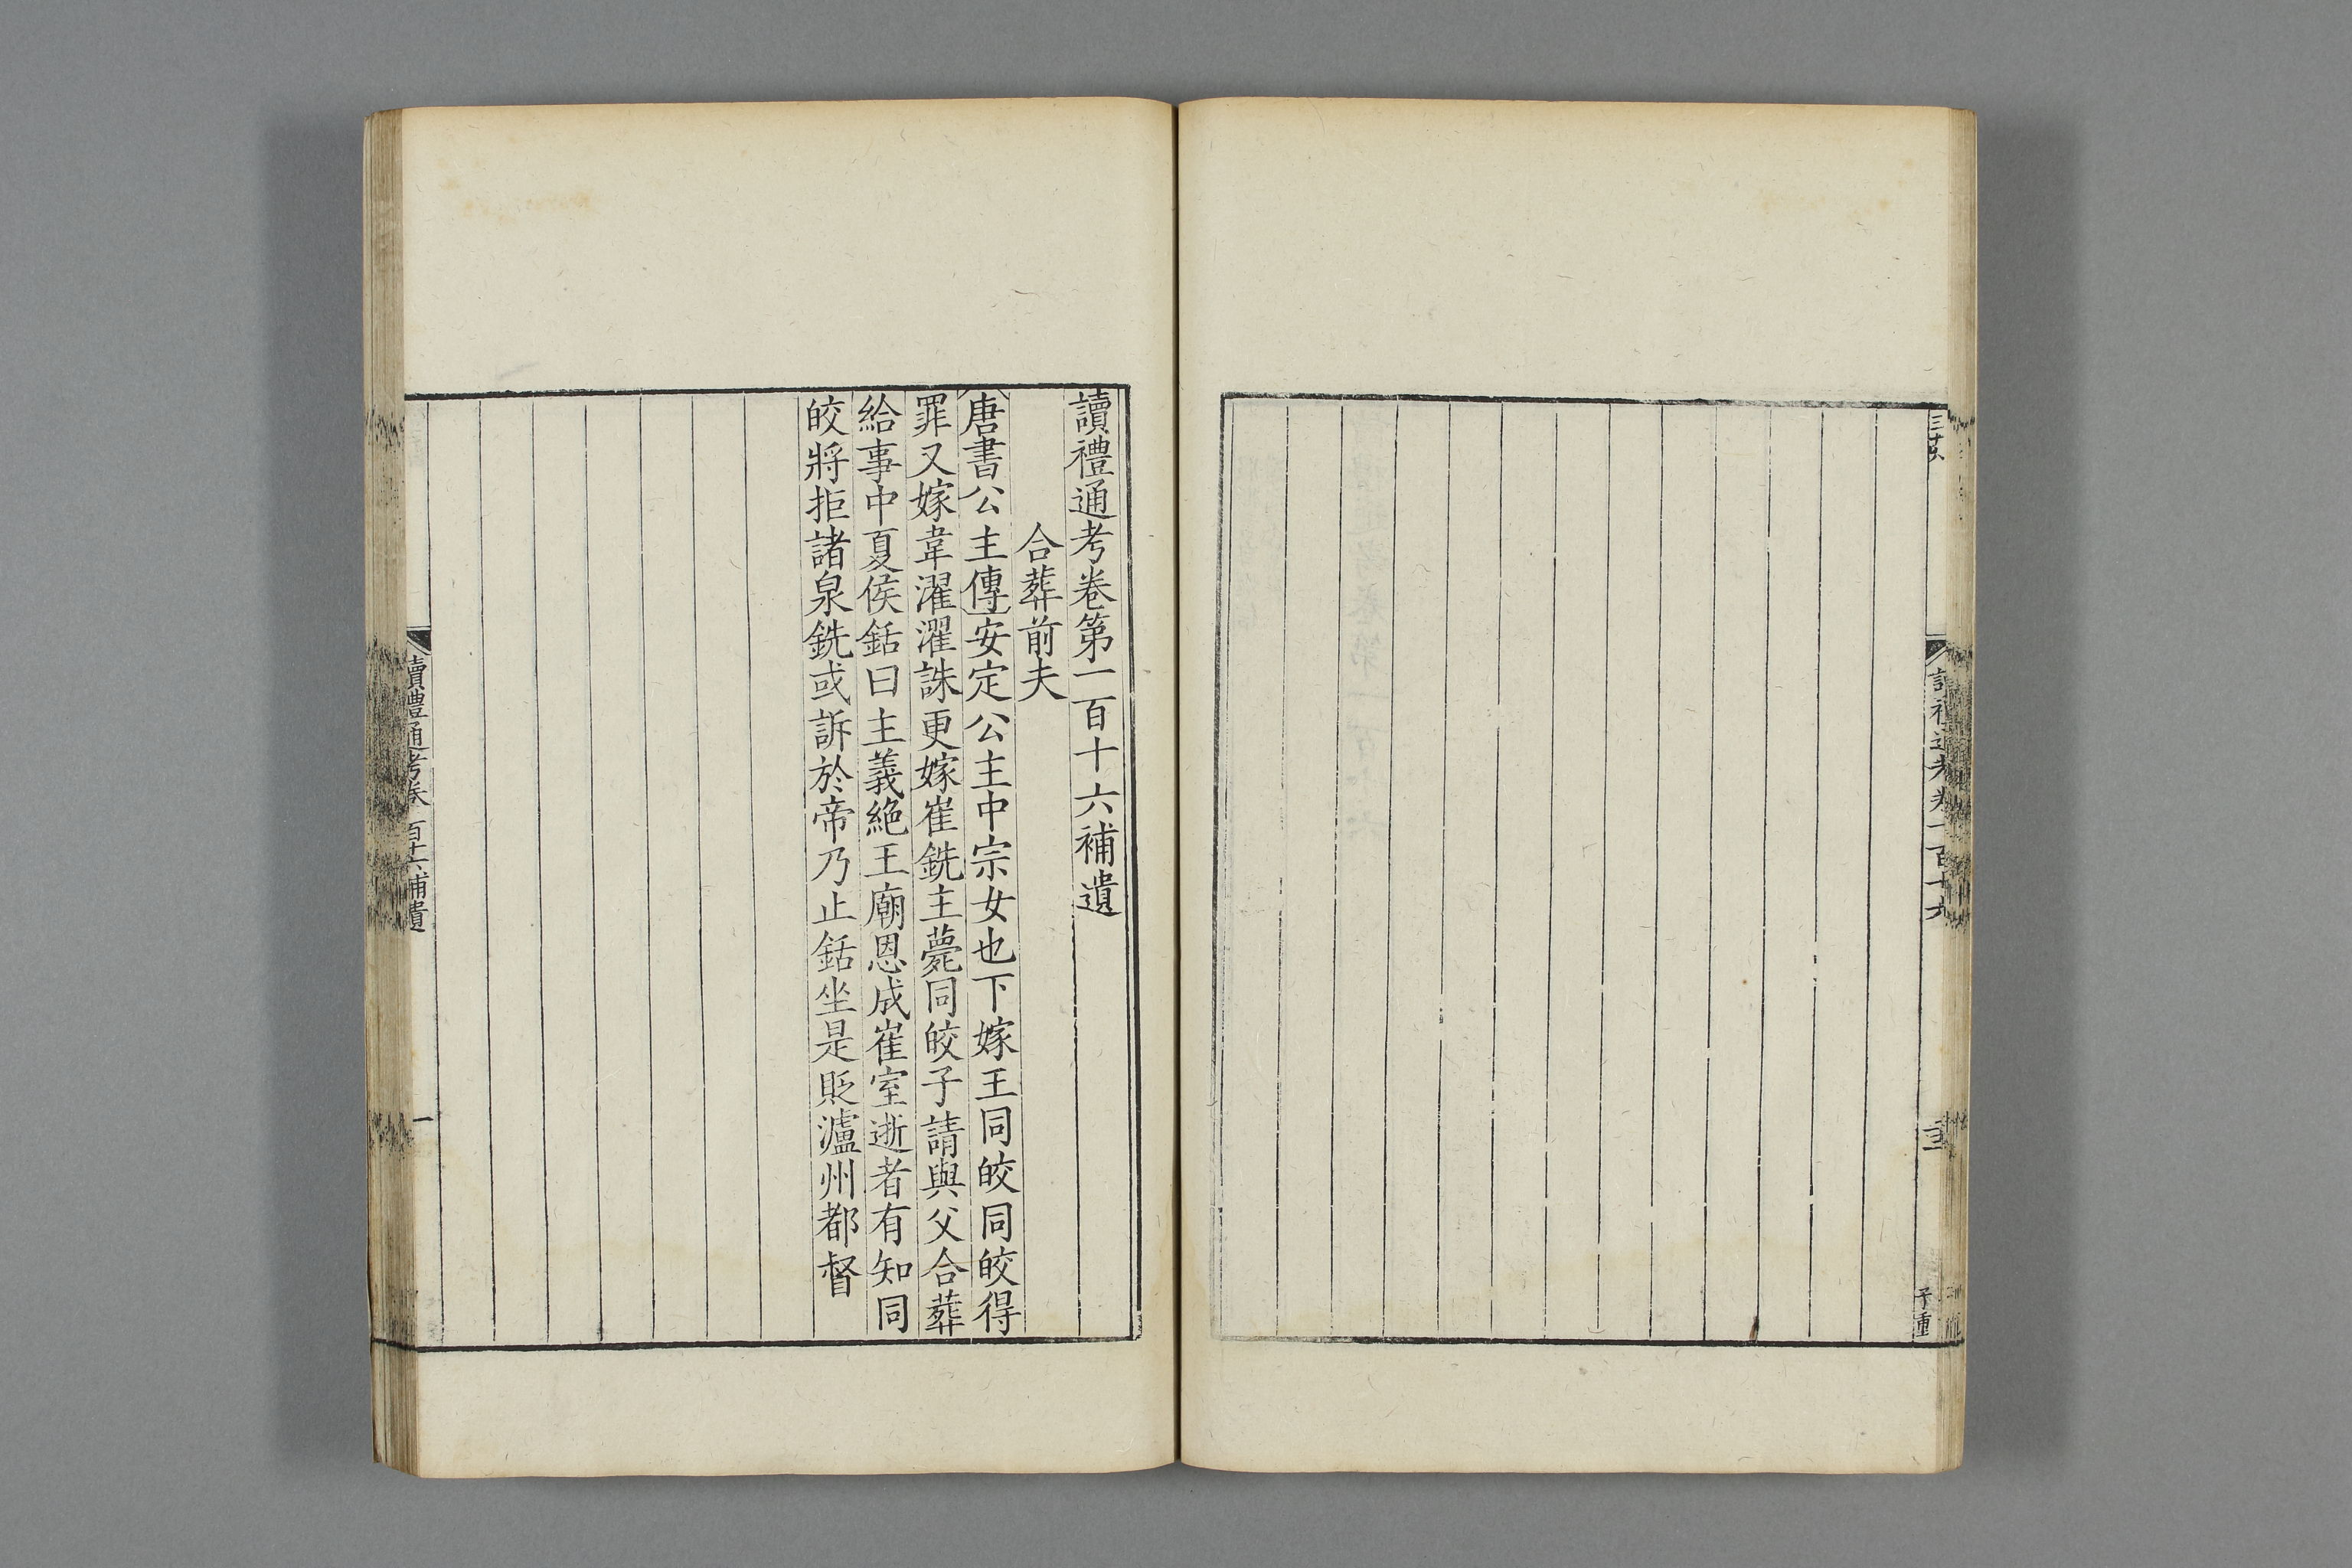 讀禮通考卷第一百十六補遺
合葬前夫
唐書公主傳安定公主中宗女也下嫁王同皎同皎得
罪又嫁韋濯濯誅更嫁崔銑主薨同皎子請與父合葬
給事中夏侯銛曰主義絶王廟恩成崔室逝者有知同
皎將拒諸泉銑或訴於帝乃止銛坐是貶瀘州都督
讀禮通考卷一百十六補遺
一